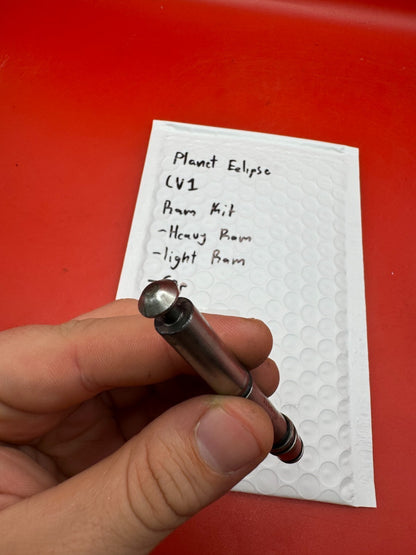 Planet Eclipse
CV1
Ram Kit
-Heavy Ram
-light Ram